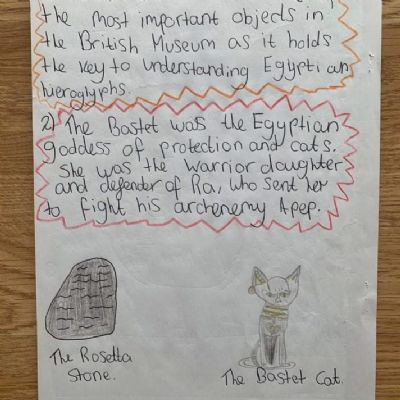 the most important objects in
the British Museum as it holds
the key to understanding Egyptian
hieroglyphs.
2) The Bastet was the Egyptian
goddess of protection and cats.
She was the warrior daughter
and defender of Ra, who sent her
to fight his archenemy Apep.
The Rosetta
Stone.
The Bastet Cat.